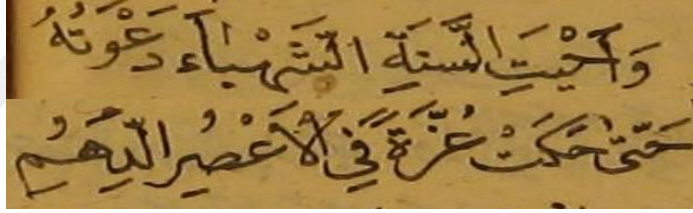 وَأَحْيَتِ السَّنَةَ الشَّهْبَاءَ دَعْوَتُهُ
حَتَّى حَكَتْ غُرَّةً فِي الْأَعْصُرِ الدُّهُمِ